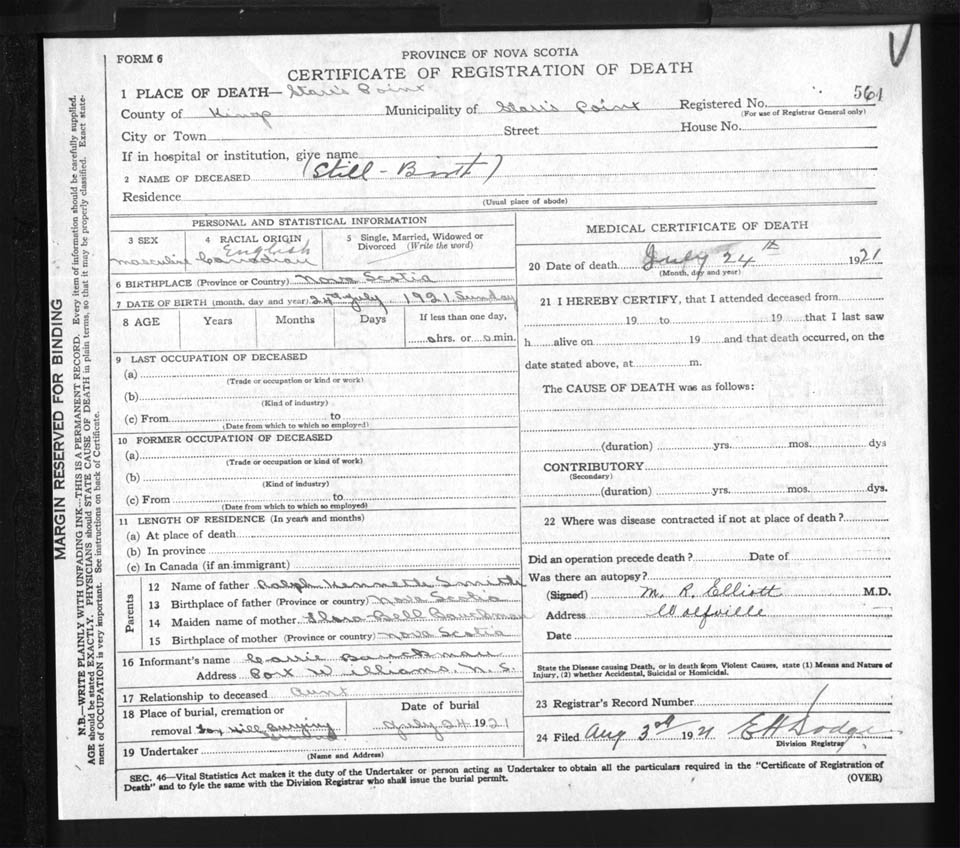 FORM 6
PROVINCE OF NOVA SCOTIA
CERTIFICATE OF REGISTRATION OF DEATH
1 PLACE OF DEATH— Starr's Point
County of Kings Municipality of Starr's Point Registered No. 561
(For use of Registrar General only)
City or Town Street House No.
If in hospital or institution, give name
2 NAME OF DECEASED (Still - Birth)
Residence
(Usual place of abode)
PERSONAL AND STATISTICAL INFORMATION
3 SEX
masculine
4 RACIAL ORIGIN
English
Canadian
5 Single, Married, Widowed or
Divorced (Write the word)
6 BIRTHPLACE (Province or Country) Nova Scotia
7 DATE OF BIRTH (month, day and year) 24th July 1921. Sunday
8 AGE Years Months Days If less than one day,
0 hrs. or 0 min.
9 LAST OCCUPATION OF DECEASED
(a)
(Trade or occupation or kind or work)
(b)
(Kind of industry)
(c) From to
(Date from which to which so employed)
10 FORMER OCCUPATION OF DECEASED
(a)
(Trade or occupation or kind of work)
(b)
(Kind of industry)
(c) From to
(Date from which to which so employed)
11 LENGTH OF RESIDENCE (In years and months)
(a) At place of death
(b) In province
(c) In Canada (if an immigrant)
Parents
12 Name of father Ralph Kenneth Smith
13 Birthplace of father (Province or country) Nova Scotia
14 Maiden name of mother Flora Bell Bauckman
15 Birthplace of mother (Province or country) Nova Scotia
16 Informant's name Carrie Bauckman
Address Port Williams, N. S.
17 Relationship to deceased Aunt
18 Place of burial, cremation or
removal Fox Hill Burying
Date of burial
July 24 1921
19 Undertaker
(Name and Address)
MEDICAL CERTIFICATE OF DEATH
20 Date of death July 24th 1921
(Month, day and year)
21 I HEREBY CERTIFY, that I attended deceased from
19 to 19 that I last saw
h alive on 19 and that death occurred, on the
date stated above, at m.
The CAUSE OF DEATH was as follows:
(duration) yrs. mos. dys
CONTRIBUTORY
(Secondary)
(duration) yrs. mos. dys.
22 Where was disease contracted if not at place of death?
Did an operation precede death? Date of
Was there an autopsy?
(Signed) M. R. Elliott M.D.
Address Wolfville
Date
State the Disease causing Death, or in death from Violent Causes, state (1) Means and Nature of
Injury, (2) whether Accidental, Suicidal or Homicidal.
23 Registrar's Record Number
24 Filed Aug 3rd 1921 E H Dodge
Division Registrar
SEC. 46—Vital Statistics Act makes it the duty of the Undertaker or person acting as Undertaker to obtain all the particulars required in the "Certificate of Registration of
Death" and to fyle the same with the Division Registrar who shall issue the burial permit.
(OVER)
MARGIN RESERVED FOR BINDING
N.B.—WRITE PLAINLY WITH UNFADING INK—THIS IS A PERMANENT RECORD. Every item of information should be carefully supplied.
AGE should be stated EXACTLY. PHYSICIANS should STATE CAUSE OF DEATH in plain terms, so that it may be properly classified. Exact state-
ment of OCCUPATION is very important. See instructions on back of Certificate.